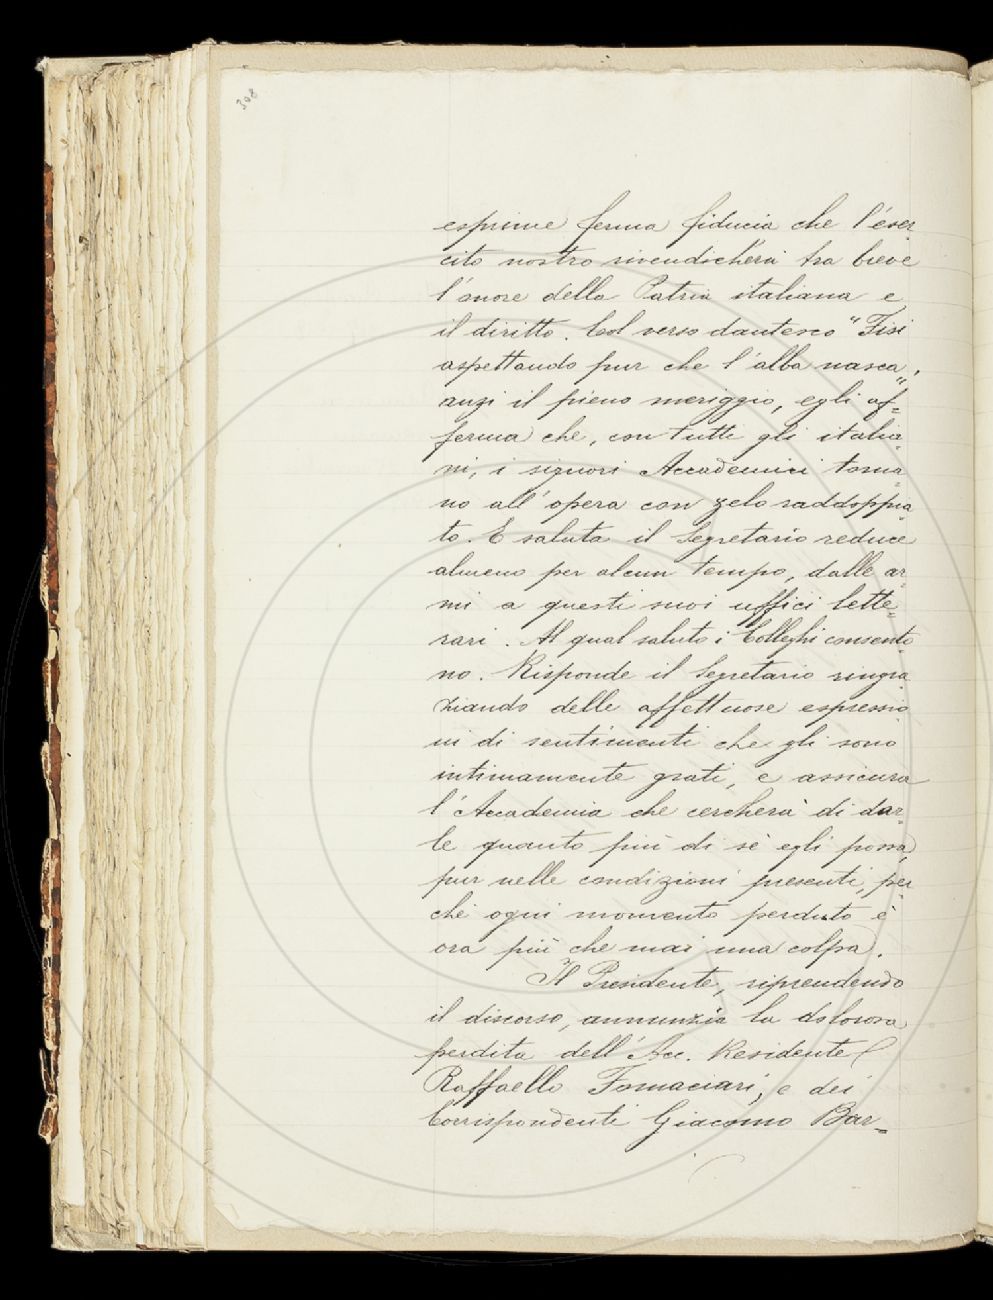 308
esprime ferma fiducia che l'éser
cito nostro rivendicherà tra breve
l'onore della Patria italiana e
il diritto. Col verso dantesco "Fisi
aspettando pur che l'alba nasca",
anzi il pieno meriggio, egli af=
ferma che, con tutti gli italia=
ni, i signori Accademici torna=
no all'opera con zelo raddoppia=
to. E saluta il Segretario reduce
almeno per alcun tempo, dalle ar=
mi a questi suoi uffici lette=
rari. Al qual saluto i Colleghi consento=
no. Risponde il Segretario ringra=
ziando delle affettuose espressio
ni di sentimenti che gli sono
intimamente grati, e assicura
l'Accademia che cercherà di dar=
le quanto più di sè egli possa,
pur nelle condizioni presenti, per=
chè ogni momento perduto è
ora più che mai una colpa.
Il Presidente, riprendendo
il discorso, annunzia la dolorosa
perdita dell'Acc. Residente
Raffaello Fornaciari, e dei
Corrispondenti Giacomo Bar=